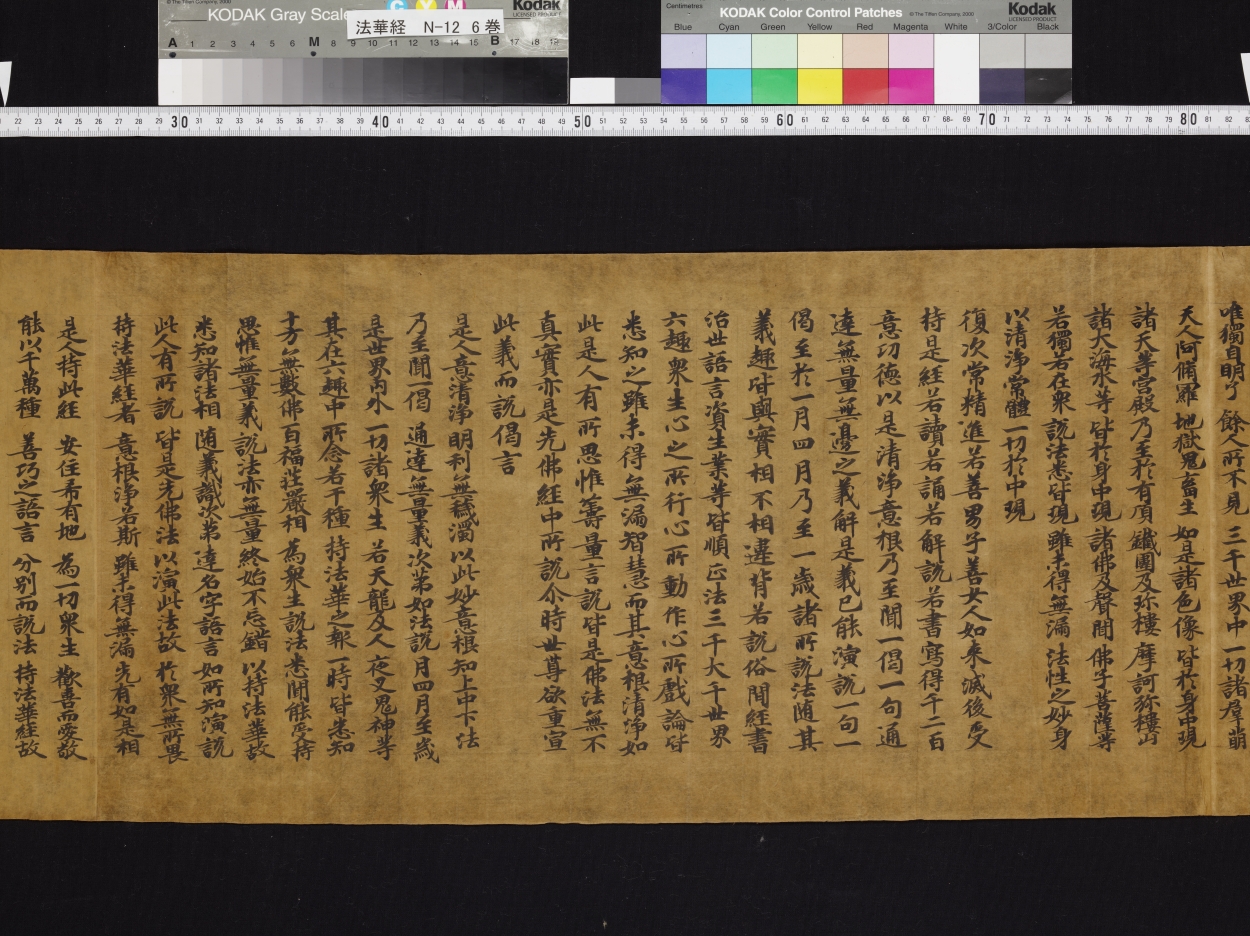 KODAK Gray Scale
Kodak
LICENSED PRODUCT
C Y M
法華経 N-12 6巻
A 1 2 3 4 5 6 M 8 9 10 11 12 13 14 15 B 17 18 19
Centimetres
KODAK Color Control Patches
© The Tiffen Company, 2000
Kodak
LICENSED PRODUCT
Blue Cyan Green Yellow Red Magenta White 3/Color Black
22 23 24 25 26 27 28 29 30 31 32 33 34 35 36 37 38 39 40 41 42 43 44 45 46 47 48 49 50 51 52 53 54 55 56 57 58 59 60 61 62 63 64 65 66 67 68 69 70 71 72 73 74 75 76 77 78 79 80 81 82
唯獨自明了 餘人所不見 三千世界中 一切諸群萌
天人阿脩羅 地獄鬼畜生 如是諸色像 皆於身中現
諸天等宮殿 乃至於有頂 鐵圍及弥樓 摩訶弥樓山
諸大海水等 皆於身中現 諸佛及聲聞 佛子菩薩等
若獨若在衆 說法悉皆現 雖未得無漏 法性之妙身
以清淨常體 一切於中現
復次常精進若善男子善女人如來滅後受
持是經若讀若誦若解說若書寫得千二百
意功德以是清淨意根乃至聞一偈一句通
達無量無邊之義解是義已能演說一句一
偈至於一月四月乃至一歲諸所說法随其
義趣皆與實相不相違背若說俗間經書
治世語言資生業等皆順正法三千大千世界
六趣衆生心之所行心所動作心所戲論皆
悉知之雖未得無漏智慧而其意根清淨如
此是人有所思惟籌量言說皆是佛法無不
真實亦是先佛經中所說尒時世尊欲重宣
此義而說偈言
是人意清淨 明利無穢濁 以此妙意根 知上中下法
乃至聞一偈 通達無量義 次第如法說 月四月至歲
是世界內外 一切諸衆生 若天龍及人 夜叉鬼神等
其在六趣中 所念若干種 持法華之報 一時皆悉知
十方無數佛 百福莊嚴相 為衆生說法 悉聞能受持
思惟無量義 說法亦無量 終始不忘錯 以持法華故
悉知諸法相 随義識次第 達名字語言 如所知演說
此人有所說 皆是先佛法 以演此法故 於衆無所畏
持法華經者 意根淨若斯 雖未得無漏 先有如是相
是人持此經 安住希有地 為一切衆生 歡喜而愛敬
能以千萬種 善巧之語言 分別而說法 持法華經故